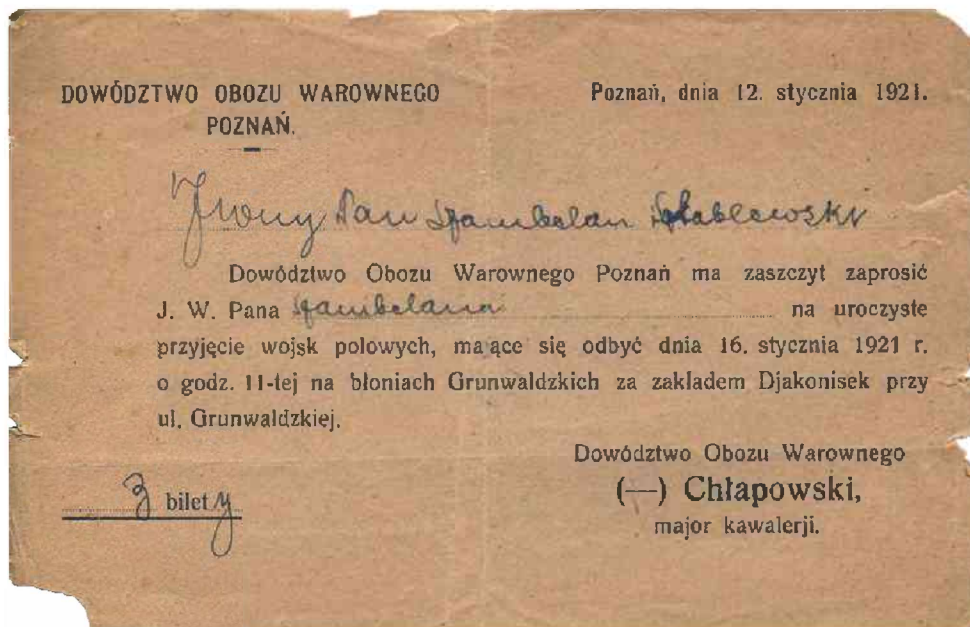 DOWÓDZTWO OBOZU WAROWNEGO
POZNAŃ.
Poznań, dnia 12. stycznia 1921.
Pan Szambelan
Dowództwo Obozu Warownego Poznań ma zaszczyt zaprosić
J. W. Pana Szambelana na uroczyste
przyjęcie wojsk polowych, ma ące się odbyć dnia 16. stycznia 1921 r.
o godz. 11-tej na błoniach Grunwaldzkich za zakładem Djakonisek przy
ul. Grunwaldzkiej.
Dowództwo Obozu Warownego
(—) Chłapowski,
major kawalerji.
3 bilety